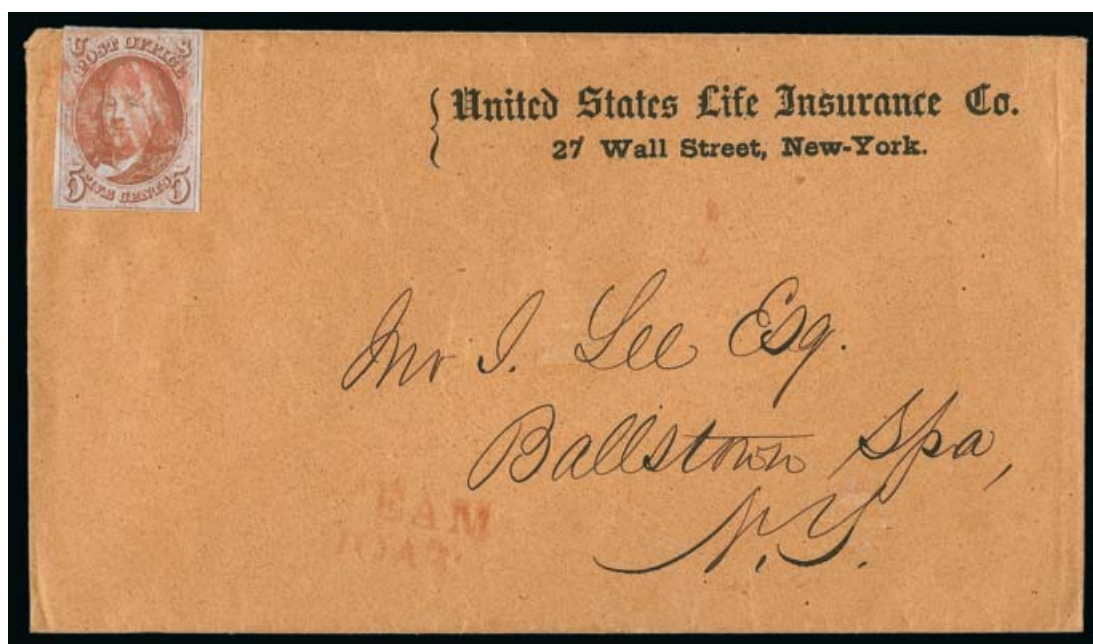 U S
POST OFFICE
FIVE CENTS
5 5
United States Life Insurance Co.
27 Wall Street, New-York.
Jno I. Lee Esq.
Ballstown Spa,
N.Y.